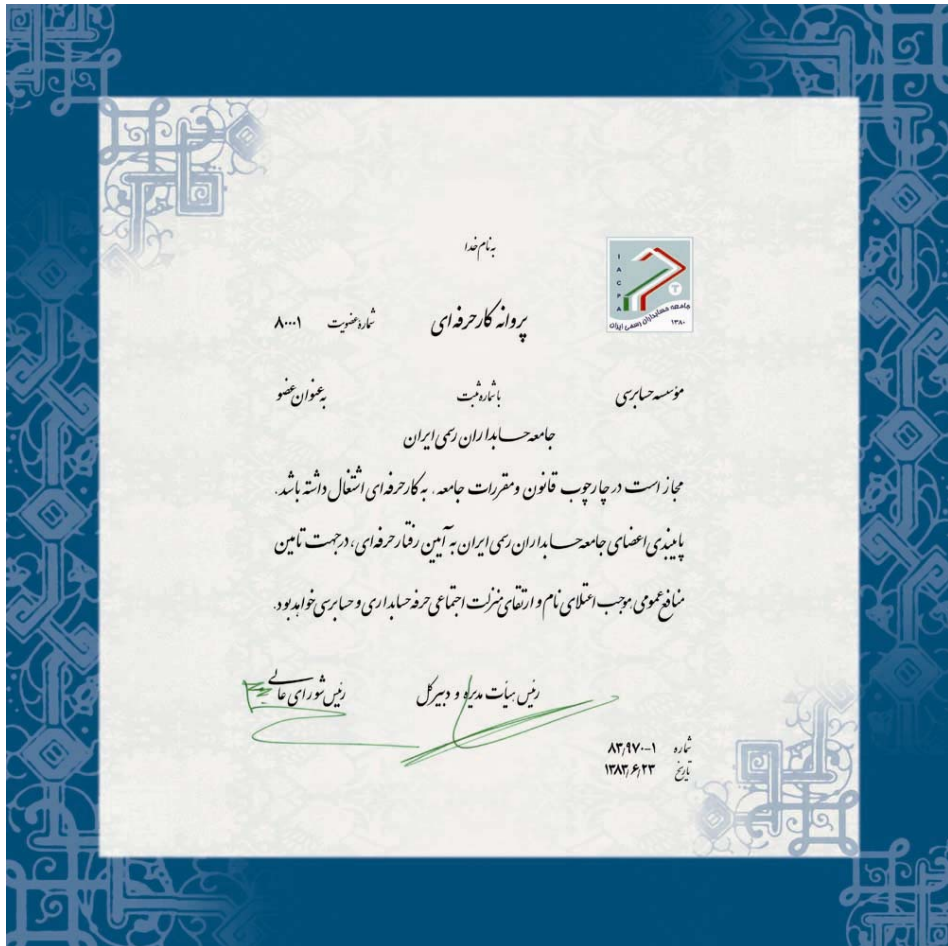 به نام خدا
I
A
C
P
A
جامعه حسابداران رسمی ایران
۱۳۸۰
پروانه کار حرفه‌ای شماره عضویت ۸۰۰۰۱
مؤسسه حسابرسی با شماره ثبت به عنوان عضو
جامعه حسابداران رسمی ایران
مجاز است در چارچوب قانون و مقررات جامعه، به کار حرفه‌ای اشتغال داشته باشد.
پایبندی اعضای جامعه حسابداران رسمی ایران به آیین رفتار حرفه‌ای، در جهت تامین
منافع عمومی موجب اعتلای نام و ارتقای منزلت اجتماعی حرفه حسابداری و حسابرسی خواهد بود.
رئیس هیأت مدیره و دبیر کل رئیس شورای عالی
شماره ۸۳٫۹۷۰-۱
تاریخ ۱۳۸۳٫۶٫۲۳